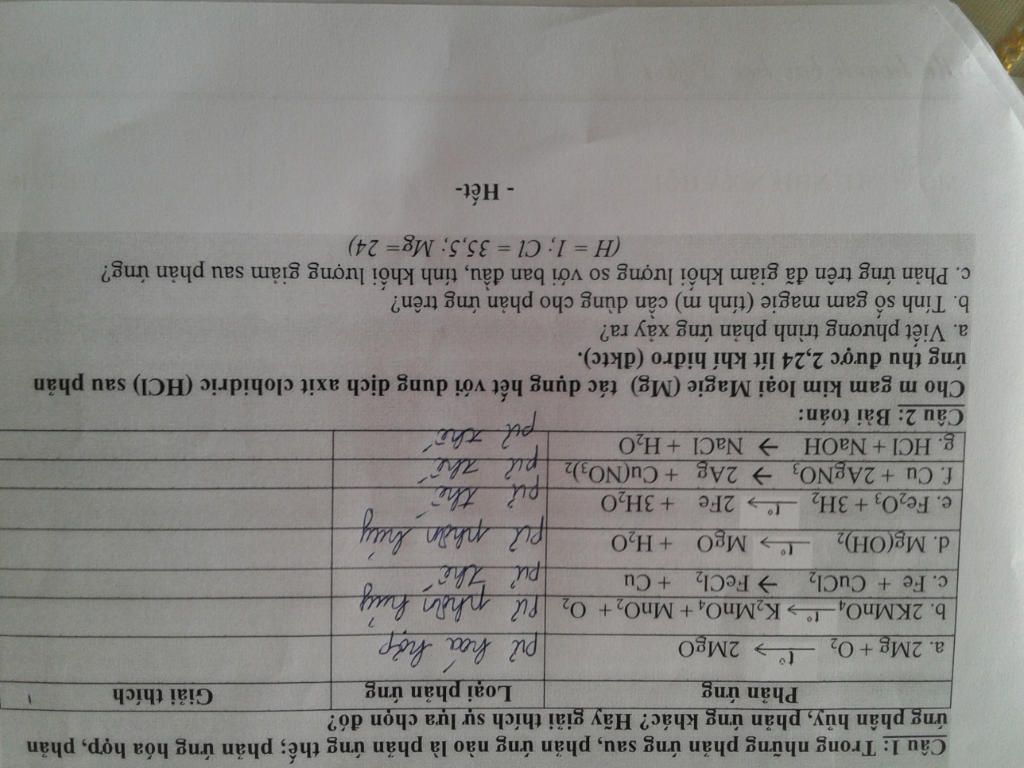 Câu 1: Trong những phản ứng sau, phản ứng nào là phản ứng thế; phản ứng hóa hợp, phản
ứng phân hủy, phản ứng khác? Hãy giải thích sự lựa chọn đó?
Phản ứng Loại phản ứng Giải thích
a. 2Mg + O₂ —t°→ 2MgO pứ hoá hợp
b. 2KMnO₄ —t°→ K₂MnO₄ + MnO₂ + O₂ pứ phân hủy
c. Fe + CuCl₂ → FeCl₂ + Cu pứ thế
d. Mg(OH)₂ —t°→ MgO + H₂O pứ phân hủy
e. Fe₂O₃ + 3H₂ —t°→ 2Fe + 3H₂O pứ thế
f. Cu + 2AgNO₃ → 2Ag + Cu(NO₃)₂ pứ thế
g. HCl + NaOH → NaCl + H₂O pứ thế
Câu 2: Bài toán:
Cho m gam kim loại Magie (Mg) tác dụng hết với dung dịch axit clohidric (HCl) sau phản
ứng thu được 2,24 lít khí hiđro (đktc).
a. Viết phương trình phản ứng xảy ra?
b. Tính số gam magie (tính m) cần dùng cho phản ứng trên?
c. Phản ứng trên đã giảm khối lượng so với ban đầu, tính khối lượng giảm sau phản ứng?
(H = 1; Cl = 35,5; Mg= 24)
- Hết-